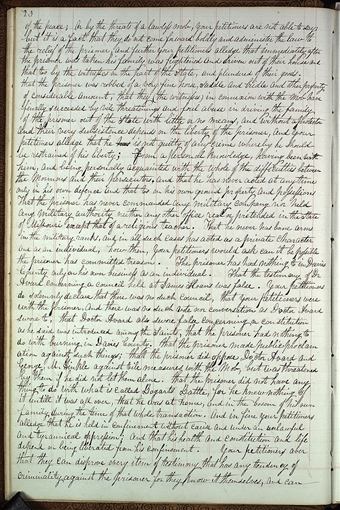 20
of the peace; or by the threats of a lawless mob, your petitioners are not able to say
but it is a fact that they do not come forward boldly and administer the law to
the relief of the prisoner, and further your petitioners alledge that immediately after
the prisoner was taken his family was frightened and driven out of their house and
that too by the witnesses on the part of the State, and plundered of their goods,
that the prisoner was robbed of a very fine horse, saddle and bridle and other property
of considerable amount; that they (the witnesses) in connexion with the mob have
finally succeded by vile threatening and foul abuse in driving the family
of the prisoner out of the State with little or no means, and without a protector
and their very subsistence depends on the liberty of the prisoner, and your
petitioners alledge that he is not guilty of any crime whereby he should
be restrained of his liberty; from a personal knowledge, having been with
him, and being personally acquainted with the whole of the difficulties between
the Mormons and their Persecutors and that he has never acted at any time
only in his own defence and that too on his own ground, property, and possessions
That the prisoner has never commanded any military company, nor held
any military authority, neither any other office, real or pretended in the state
of Missouri except that of a religious teacher. That he never has bore arms
in the military rank, and in all such cases has acted as a private Character
and as an individual, how then Your petitioners would ask can it be possible
the prisoner has committed treason. The prisoner has had nothing to do in Daviess
County only on his own business as an individual. That the testimony of Dr
Avard concerning a council held at James Sloans was false. Your petitioners
do solemnly declare that there was no such council, that your petitioners were
with the prisoner, and there was no such vote or conversation as Doctor Avard
swore to, that Doctor Avard also swore false concerning a constitution
as he said was introduced among the Danites, that the prisoner had nothing to
do with burning in Daviess County. That the prisoner made public proclam-
ation against such things; that the prisoner did oppose Doctor Avard and
George M. Hinkle against vile measures with the Mob, but was threatened
by them if he did not let them alone. That the prisoner did not have any
thing to do with what is called Bogarts Battle, for he knew nothing of
it until it was all over, that he was at home, and in the bosom of his own
family, during the time of that whole transaction. And in fine your petitioners
alledge that he is held in confinement without cause and under an unlawful
and tyrannical oppression, and that his health and constitution and life
depend on being liberated from his confinement. Your petitioners aver
that they can disprove every item of testimony that has any tendency of
criminality against the prisoner for they know it themselves, and can